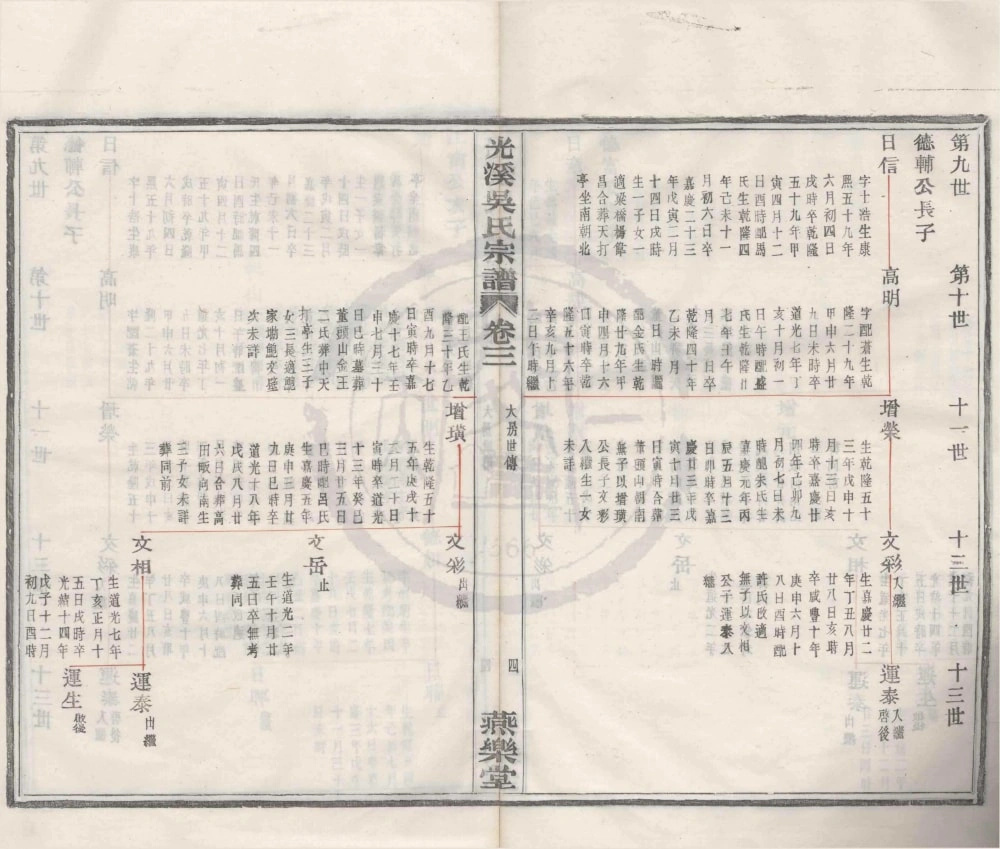 第九世
第十世
十一世
十三世
十三世
德輔公長子
日信
字十浩生康
熙五十九年
六月初四日
戌時卒乾隆
五十九年甲
寅四月十二
日酉時配馬
氏生乾隆四
年己未十一
月初六日卒
嘉慶二十三
年戊寅二月
十四日戌時
生一子女一
適梁橋楊
昌合葬天打
亭坐南朝北
高明
字配蒼生乾
隆二十九年
甲申六月廿
九日未時卒
道光七年丁
亥十月初一
日午時配盛
氏生乾隆廿
七年壬午
月日卒
乾隆四十年
乙未月
董日山時
配金氏生乾
隆廿九年甲
申四月十六
日寅時卒乾
隆五十六年
辛亥九月上
二日午時繼
增榮
生乾隆五十
三年戊申十
月十三日亥
時卒嘉慶廿
四年己卯九
月初七日未
時配朱氏生
嘉慶元年丙
辰五月十三
日卯時卒嘉
慶廿三年戊
寅十月廿三
日寅時合葬
董頭山朝南
無子以增璜
公長子文彩
入繼生一女
未詳
文彩 入繼
生嘉慶廿二
年丁丑八月
廿八日亥時
卒咸豐十年
庚申六月十
八日酉時配
許氏改適
無子以文相
公子運泰入
繼
運泰 入繼 啓後
光溪吳氏宗譜 卷三
大房世傳
四
燕樂堂
配王氏生乾
隆三十年乙
酉九月十七
日寅時卒嘉
慶十七年壬
申七月三十
日巳時墓葬
董頭山金王
二氏葬中天
打亭生三子
女三長適應
家塘鮑交經
次未詳
增璜
生乾隆五十
五年庚戌十
二月二十日
寅時卒道光
十三年癸巳
三月廿五日
巳時配呂氏
生嘉慶五年
庚申三月廿
九日巳時卒
道光十八年
戊戌八月廿
六日合葬高
田畈向南生
三子女未詳
葬同前
文彩 出繼
文岳 止
生道光二年
壬午十月廿
五日卒無考
葬同
文相
生道光七年
丁亥正月十
五日戌時卒
光緒十四年
戊子十二月
初九日酉時
運泰 出繼
運生 啟後